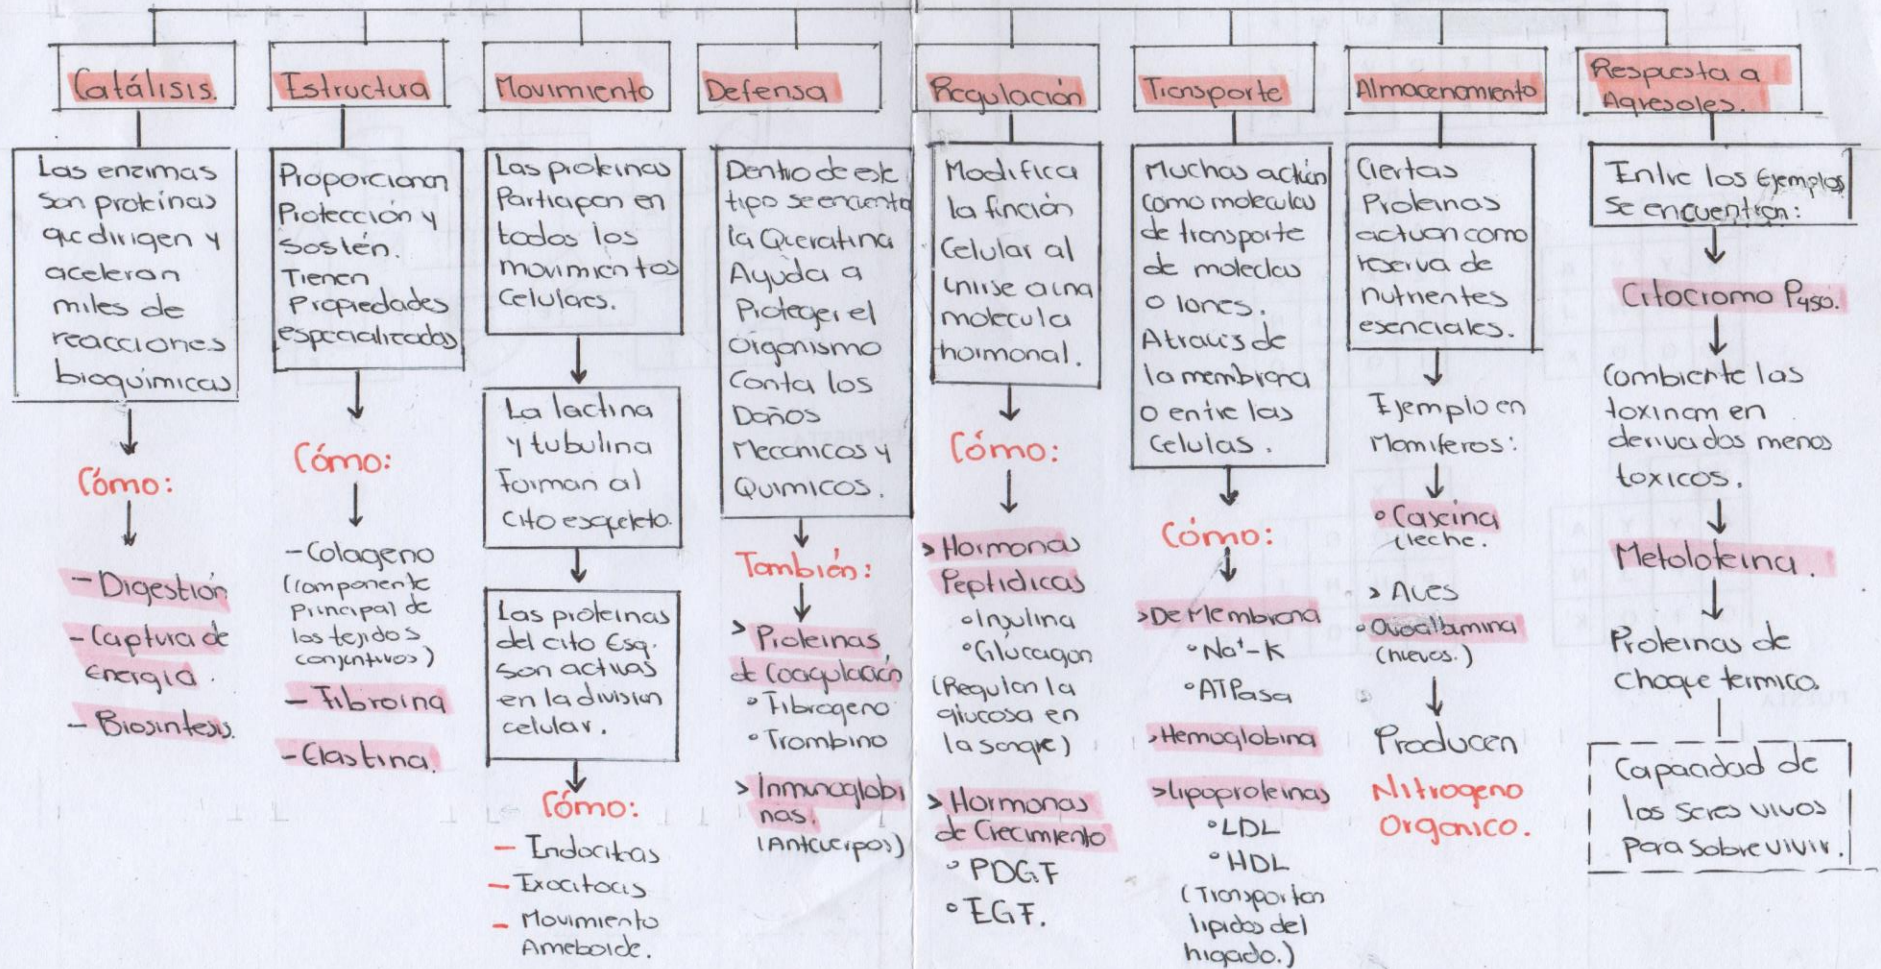 Catálisis.
Las enzimas
son proteínas
que dirigen y
aceleran
miles de
reacciones
bioquimicas
Cómo:
- Digestión
- Captura de
energia.
- Biosintesis.
Estructura
Proporcionan
Protección y
sostén.
Tienen
Propiedades
especializadas
Cómo:
- Colageno
(componente
principal de
los tejidos
conjuntivos)
- Fibroina
- Elastina.
Movimiento
Las proteinas
Participan en
todos los
movimientos
Celulares.
La lactina
y tubulina
Forman al
Cito esqueleto.
Las proteinas
del cito Esq.
son activas
en la division
celular.
Cómo:
- Endocitas
- Exocitocis
- Movimiento
Ameboide.
Defensa
Dentro de este
tipo se encuenta
la Queratina
Ayuda a
Proteger el
organismo
Conta los
Daños
Mecanicos y
Quimicos.
También:
> Proteinas
de Coagulación
° Fibrogeno
° Trombino
> Inmunoglobi
nas.
(Antcuerpos)
Regulación
Modifica
la función
Celular al
unirse a una
molecula
hormonal.
Cómo:
> Hormonas
Peptidicas
° Insulina
° Glucagon
(Regulan la
glucosa en
la sangre)
> Hormonas
de Crecimiento
° PDGF
° EGF.
Transporte
Muchas actúan
como moleculas
de transporte
de moleclas
o Iones.
Atraves de
la membrana
o entre las
Celulas.
Cómo:
> De Membrana
° Na⁺-K
° ATPasa
> Hemoglobina
> Lipoproteinas
° LDL
° HDL
(Transportan
lipidos del
higado.)
Almacenamiento
Ciertas
Proteinas
actuan como
reserva de
nutrientes
esenciales.
Ejemplo en
Mamiferos:
° Caseina
(leche.
> Aves
° Ovoalbamina
(huevos.)
Producen
Nitrogeno
Organico.
Respuesta a
Agresoles.
Entre los Ejemplos
se encuentran:
Citocromo P450.
Combiente las
toxinam en
derivados menos
toxicos.
Metaloteina.
Proteinas de
choque termico.
Capacidad de
los seres vivos
Para sobre vivir.